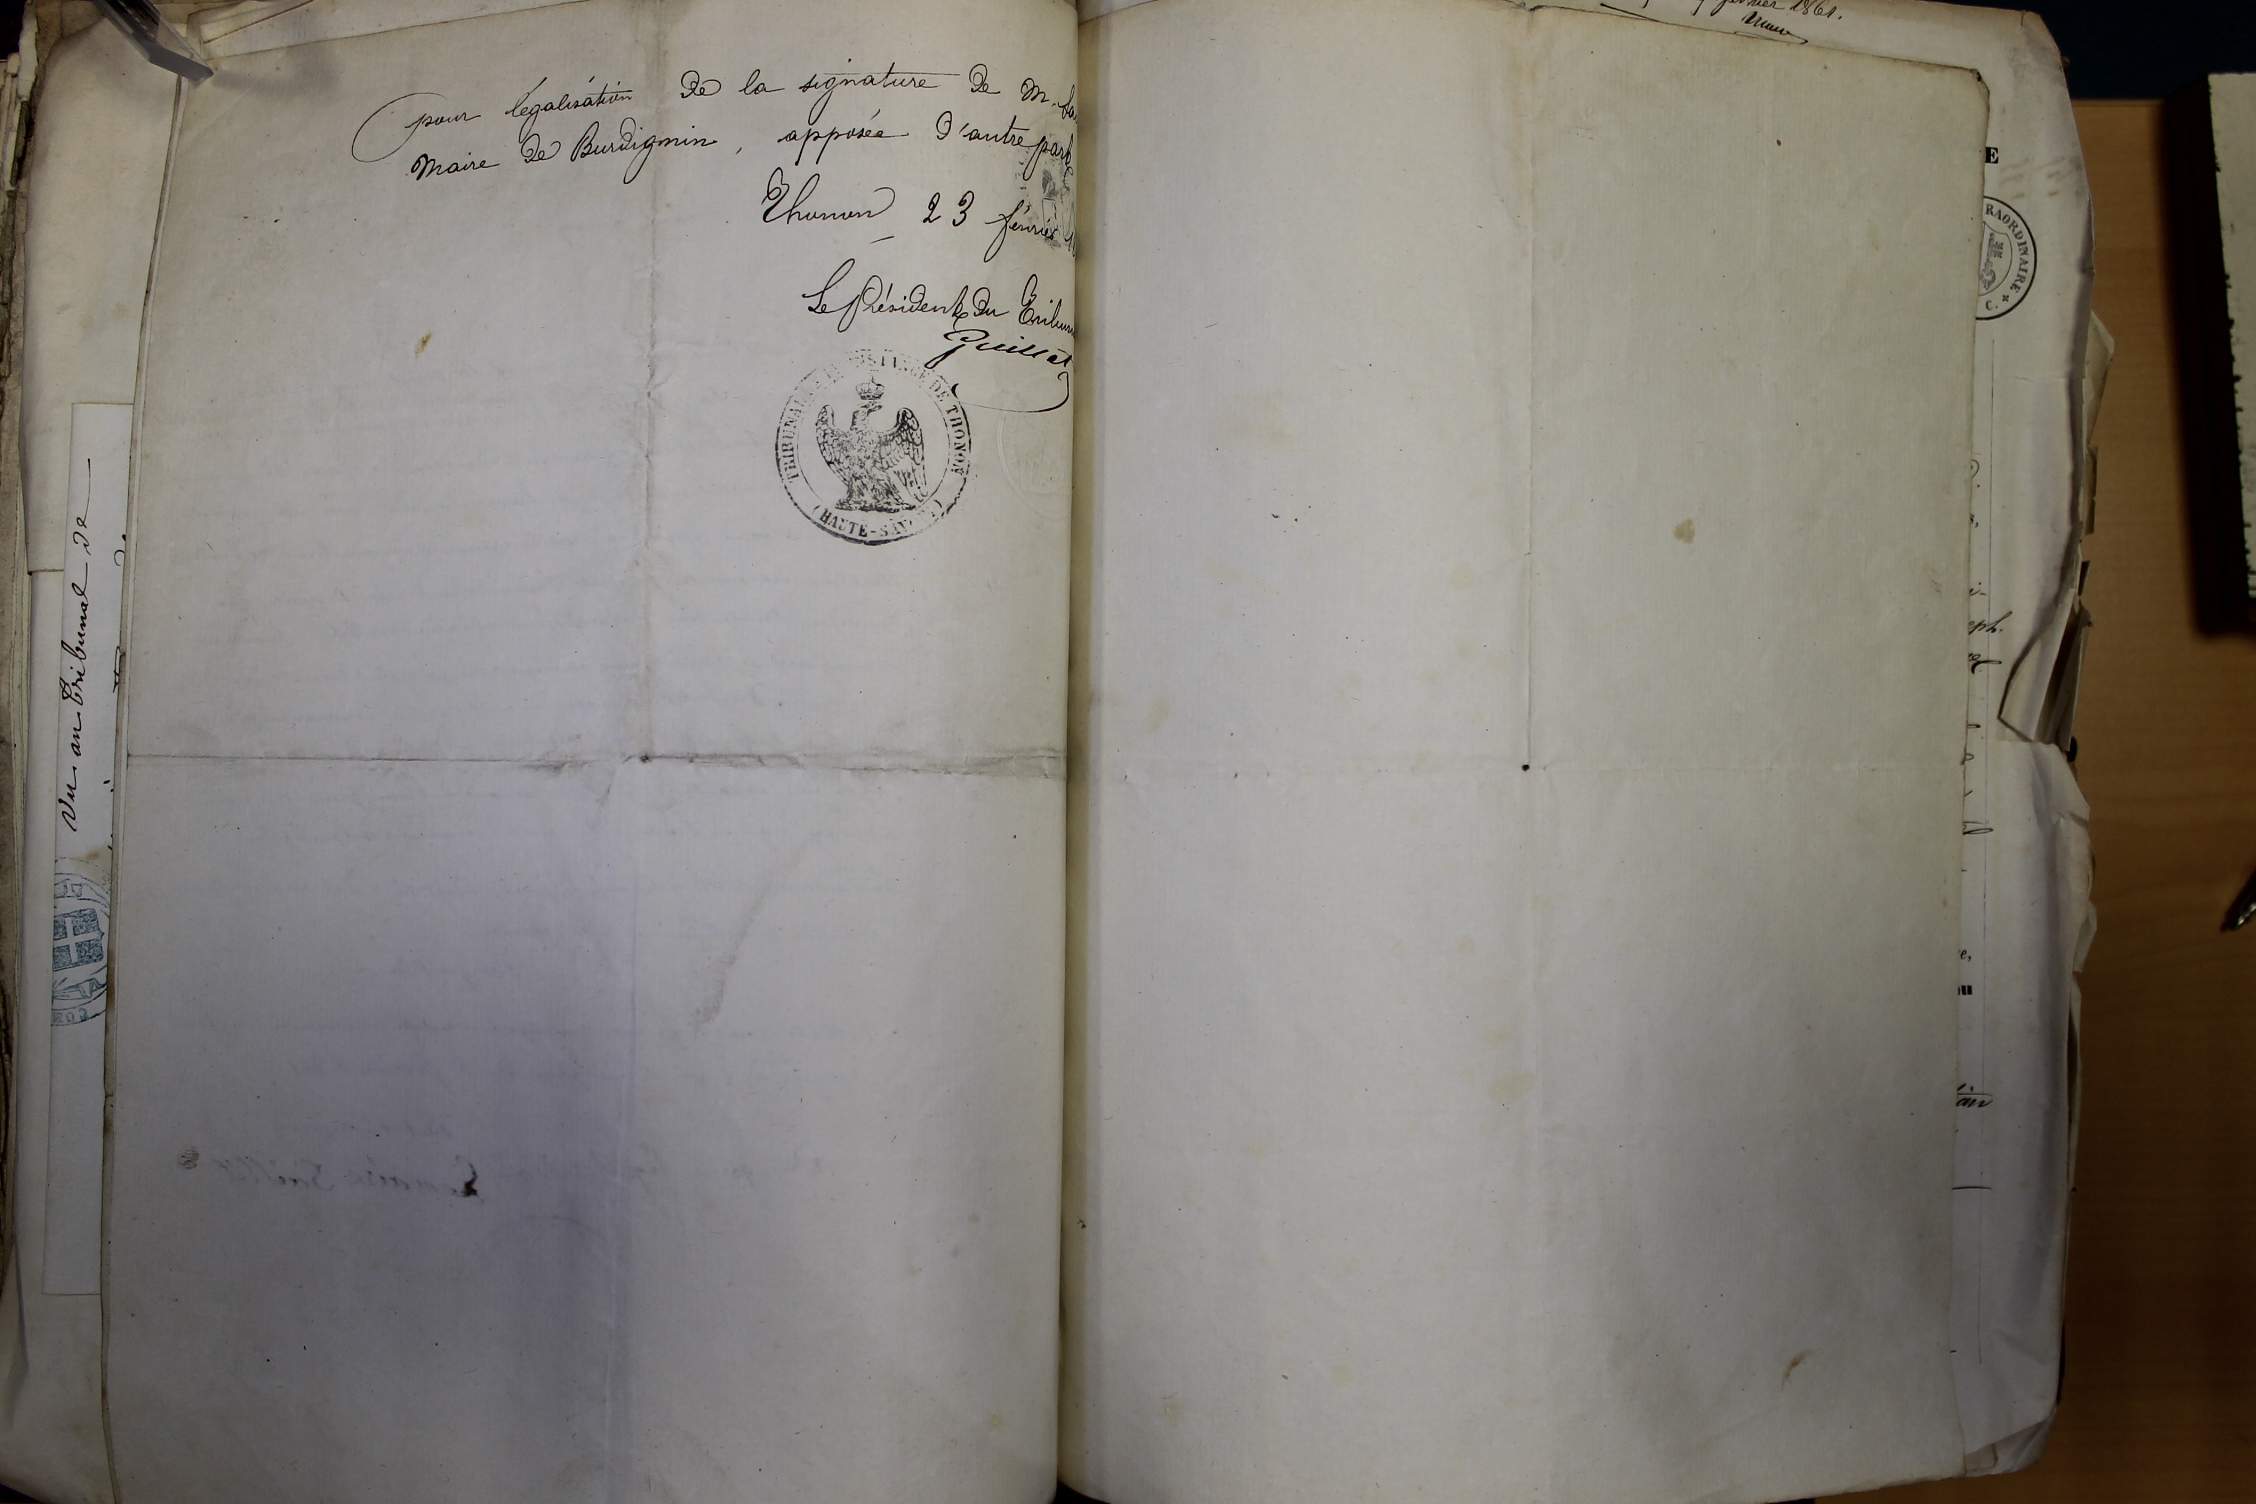 pour légalisation de la signature de M.
Maire de Burdignin, apposée d'autre part
Thonon 23 février
Le Président du Tribun
TRIBUNAL INSTANCE DE THONON
(HAUTE-SAV
Vu au Tribunal de
février 1861.
RAORDINAIRE
C.
E
eph.
et